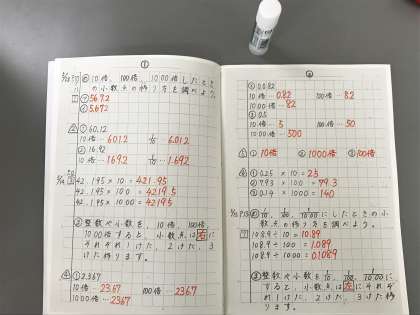 ①
10倍、100倍、1000倍したときの小数点の移り方を調べよう。
① ㋐ 567.2
㋑ 5.672
② ① 60.12
10倍… 601.2 1/10… 6.012
② 16.92
10倍… 169.2 1/10… 1.692
③ 42.195×10=421.95
42.195×100=4219.5
42.195×1000=42195
整数や小数を、10倍、100倍、
1000倍すると、小数点は右に
それぞれ1けた、2けた、3け
た移ります。
④ ① 2.367
10倍… 23.67 100倍… 236.7
1000倍… 2367
②
② 0.082
10倍… 0.82 100倍… 8.2
1000倍… 82
③ 0.5
10倍… 5 100倍… 50
1000倍… 500
⑤ ① 10倍 ② 1000倍 ③ 100倍
⑥ ① 0.25×10=2.5
② 7.93×100=793
③ 0.14×1000=140
1/10、1/100、1/1000にしたときの小
数点の移り方を調べよう。
⑦ 108.9÷10=10.89
108.9÷100=1.089
108.9÷1000=0.1089
整数や小数を1/10、1/100、1/1000に
すると、小数点は左にそれ
ぞれ1けた、2けた、3けた移
ります。